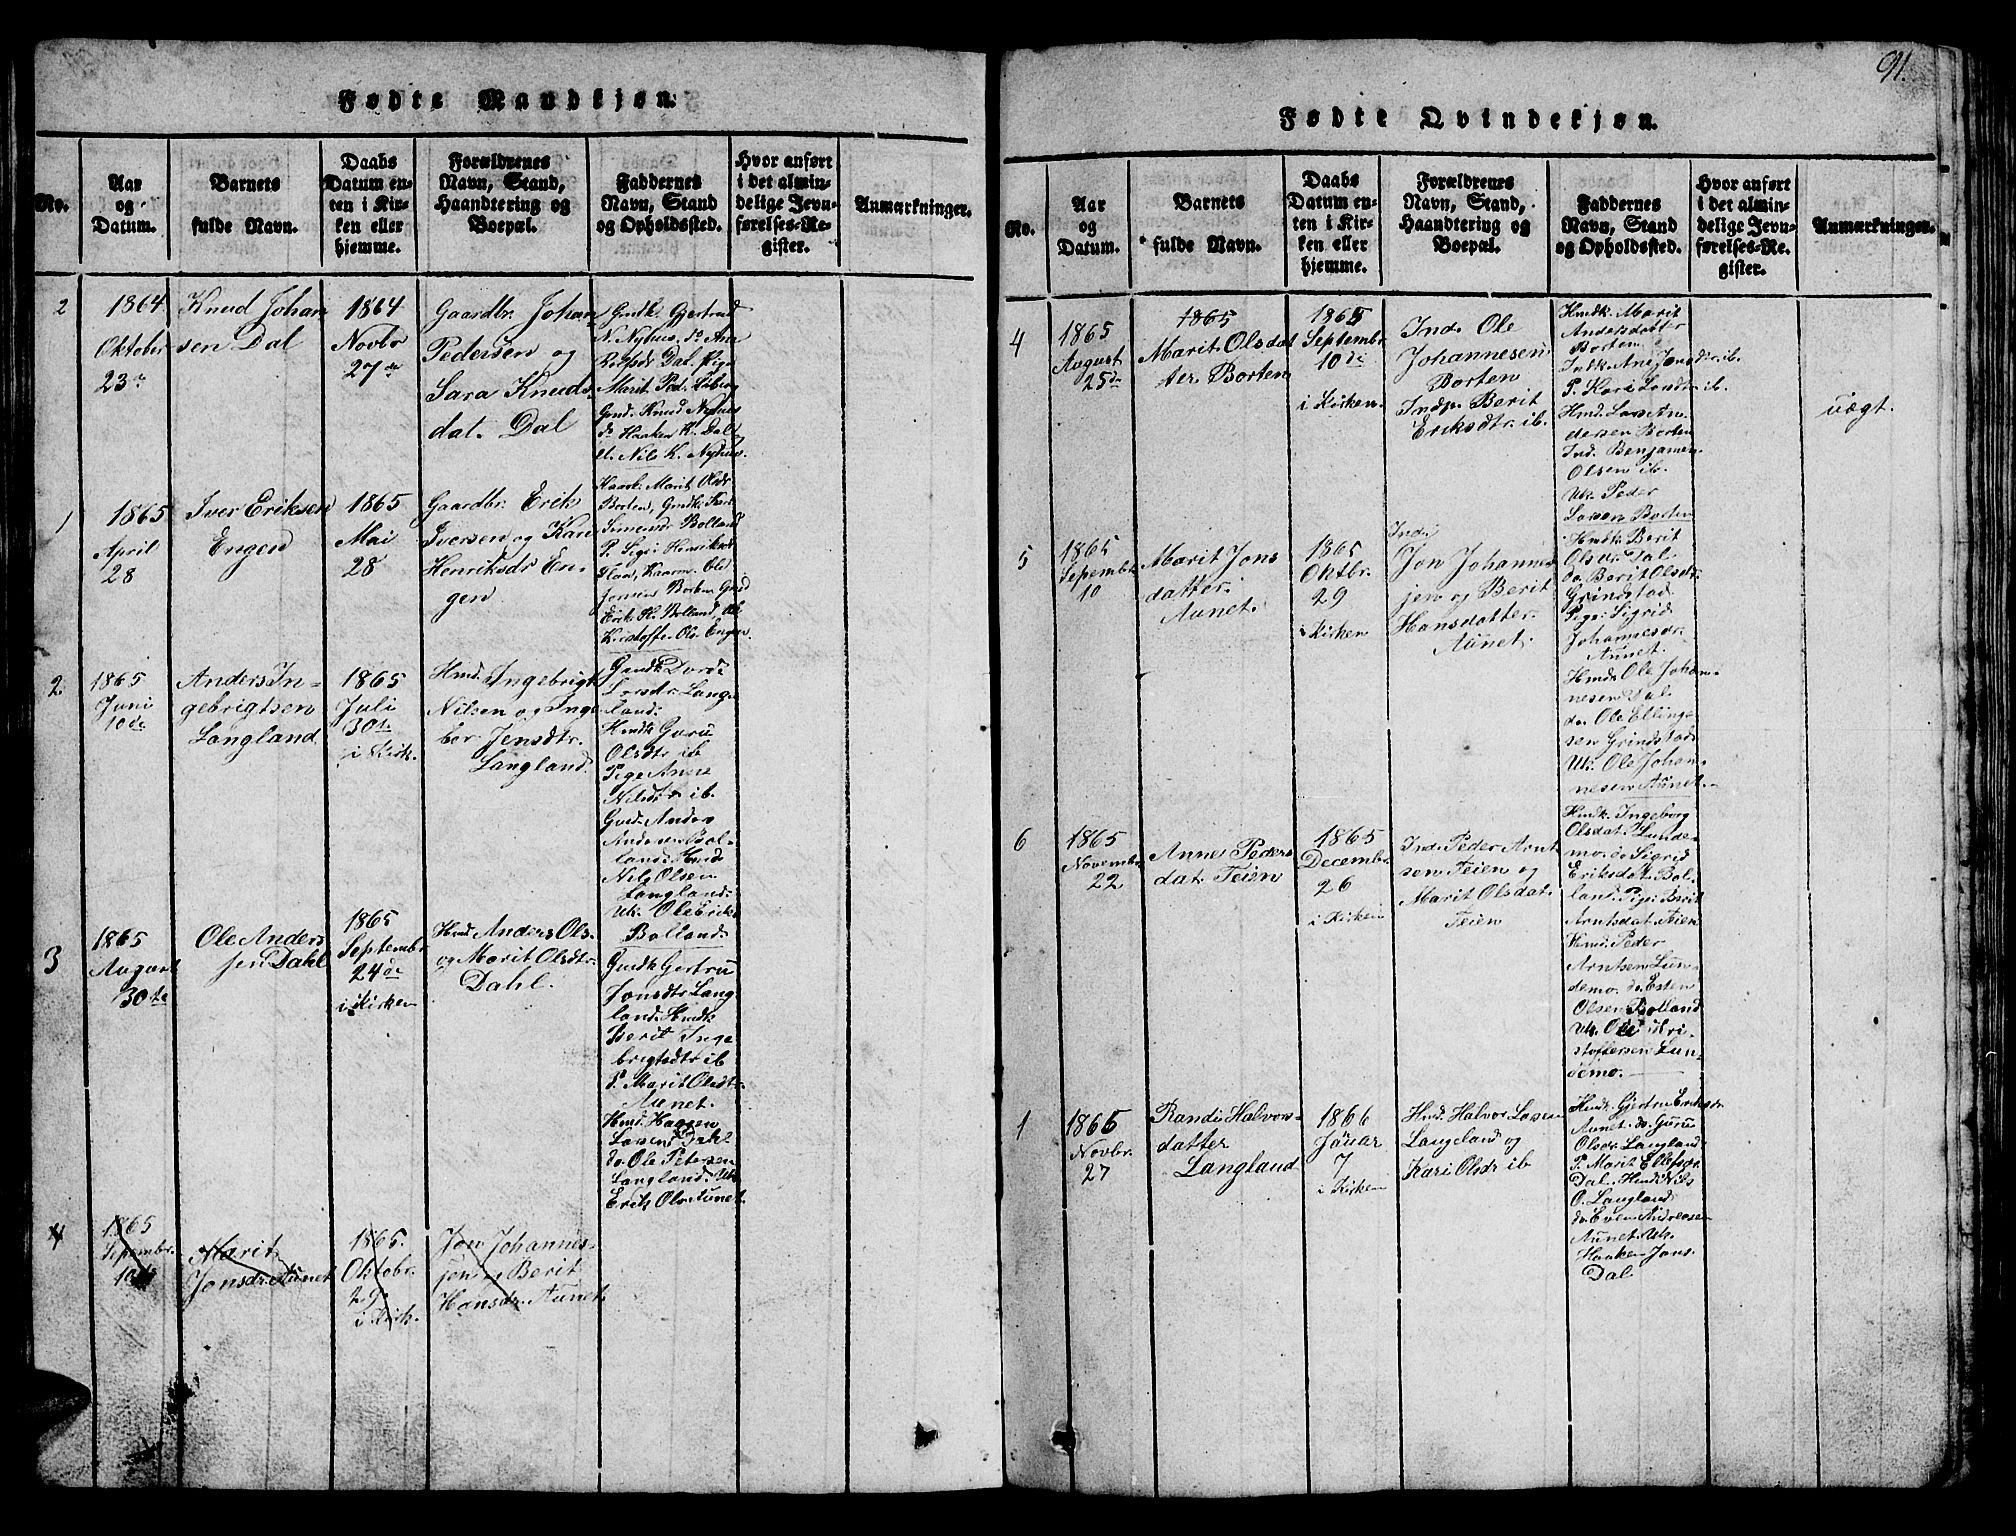 Fødte Mandkjøn.
No.
Aar
og
Datum.
Barnets
fulde Navn.
Daabs
Datum en-
ten i Kir-
ken eller
hjemme.
Forældrenes
Navn, Stand,
Haandtering og
Boepæl.
Faddernes
Navn, Stand
og Opholdssted.
Hvor anført
i det almin-
delige Jevn-
førelses-Re-
gister.
Anmærkninger.
2
1864
Oktober
23de
Knud Johan
sen Dal
1864
Novbr
27de
Gaardbr. Johan
Pedersen og
Sara Knuds-
dat. Dal
Gmdk. Gjertrud
N. Nyhus, do Ane
Rolfsdr Dal Pige
Marit Ped.
Gmd. Knud Nyhus
do Haaken K. Dal
U. Nils K. Nyhus
1
1865
April
28
Iver Eriksen
Engen
1865
Mai
28
Gaardbr. Erik
Iversen og Kari
Henriksdr En-
gen
Kaark. Marit Olsdr
Borten, Gmdk. Kari
Simensdr Bolland
P. Sigri Henriksdr
Kaarm. Ole
Jonsen Borten Gmd
Erik H. Bolland, Ol.
Kristoff. Ols Engen.
2
1865
Juni
10de
Anders In-
gebrigtsen
Langland
1865
Juli
30te
i Kirk.
Hmd. Ingebrigt
Nilsen og Inge
bor Jensdtr.
Langland.
Gmdk. Dord
Larsdr. Lang-
land.
Hmdk Guru
Olsdtr ib
Pige Anne
Nilsdtr ib.
Gmd. Anders
Andersen Bol-
land. Hmd.
Nils Olsen
Langland.
Uk. Ole Erik.
Bolland.
3
1865
August
30te
Ole Anders
sen Dahl
1865
Septembr
24de
i Kirken
Hmd. Anders Ols.
og Marit Olsdtr.
Dahl.
Gmdk Gertru
Jonsdtr Lang
land. Hmdk
Berit Inge
brigtsdtr ib
P. Marit Olsdtr
Aunet.
Hmd. Haagen
Larsen Dahl
do. Ole Petersen
Langland. Uk
Erik Ols Aunet
4
1865
Sepembr.
10de
Marit
Jonsdr. Aunet
1865.
Oktobr.
29
i Kirk.
Jon Johannes-
sen og Berit
Hansdr. Aunet
91.
Fødte Qvindekjøn.
No.
Aar
og
Datum.
Barnets
fulde Navn.
Daabs
Datum en-
ten i Kir-
ken eller
hjemme.
Forældrenes
Navn, Stand,
Haandtering og
Boepæl.
Faddernes
Navn, Stand
og Opholdssted.
Hvor anført
i det almin-
delige Jevn-
førelses-Re-
gister.
Anmærkninger.
4
1865
August
25de
1865
Marit Olsdat
ter. Borten
1865
Septembr
10de
i Kirken.
Ind. Ole
Johannesen
Borten
Indp. Berit
Eriksdtr. ib.
Hmdk. Marit
Andersdatter
Borten
Indk. Ane Jonsdtr. ib.
P. Kari Larsdtr ib.
Hmd. Lars An
dersen Borten
Ind. Benjamen
Olsen ib.
Uk. Peder
Larsen Borten
uægt.
5
1865
Sepembr
10
Marit Jons
datter
Aunet.
1865
Oktbr.
29
i Kirken
Ind.
Jon Johannes
sen og Berit
Hansdatter
Aunet.
Hmdk Berit
Olsdr. Dal
do. Berit Olsdtr.
Grindstad
Pige Sigrid
Johannesdr.
Aunet.
Hmd. Ole Johan-
nesen Dal
do. Ole Ellings
sen Grindstad
Uk. Ole Johan-
nesen Aunet.
6
1865
Novembr
22
Anne Peders
dat. Teien
1865
Decembr
26
i Kirken
Ind. Peder Arnt
sen Teien og
Marit Olsdat.
Teien
Hmdk. Ingeborg
Olsdat. Lunde-
mo. do Sigrid
Eriksdat. Bol-
land. Pige Berit
Arntsdat. Teien
Hmd. Peder
Arntsen Lun-
demo. do. Esten
Olsen Bolland
Uk. Ole Kri
stoffersen Lun-
demo.
1
1865
Novbr.
27
Randi Halvors-
datter
Langland
1866
Januar
7
i Kirken
Hmd. Halvor Larsen
Langland og
Kari Olsdr ib
Hmdk. Gjertru Eriksdr
Aunet do. Guru
Olsdr. Langland
P. Marit Ellefsdr
Dal. Hmd. Nils
O. Langland
do. Even Andreasen
Aunet Uk.
Haaken Jons.
Dal